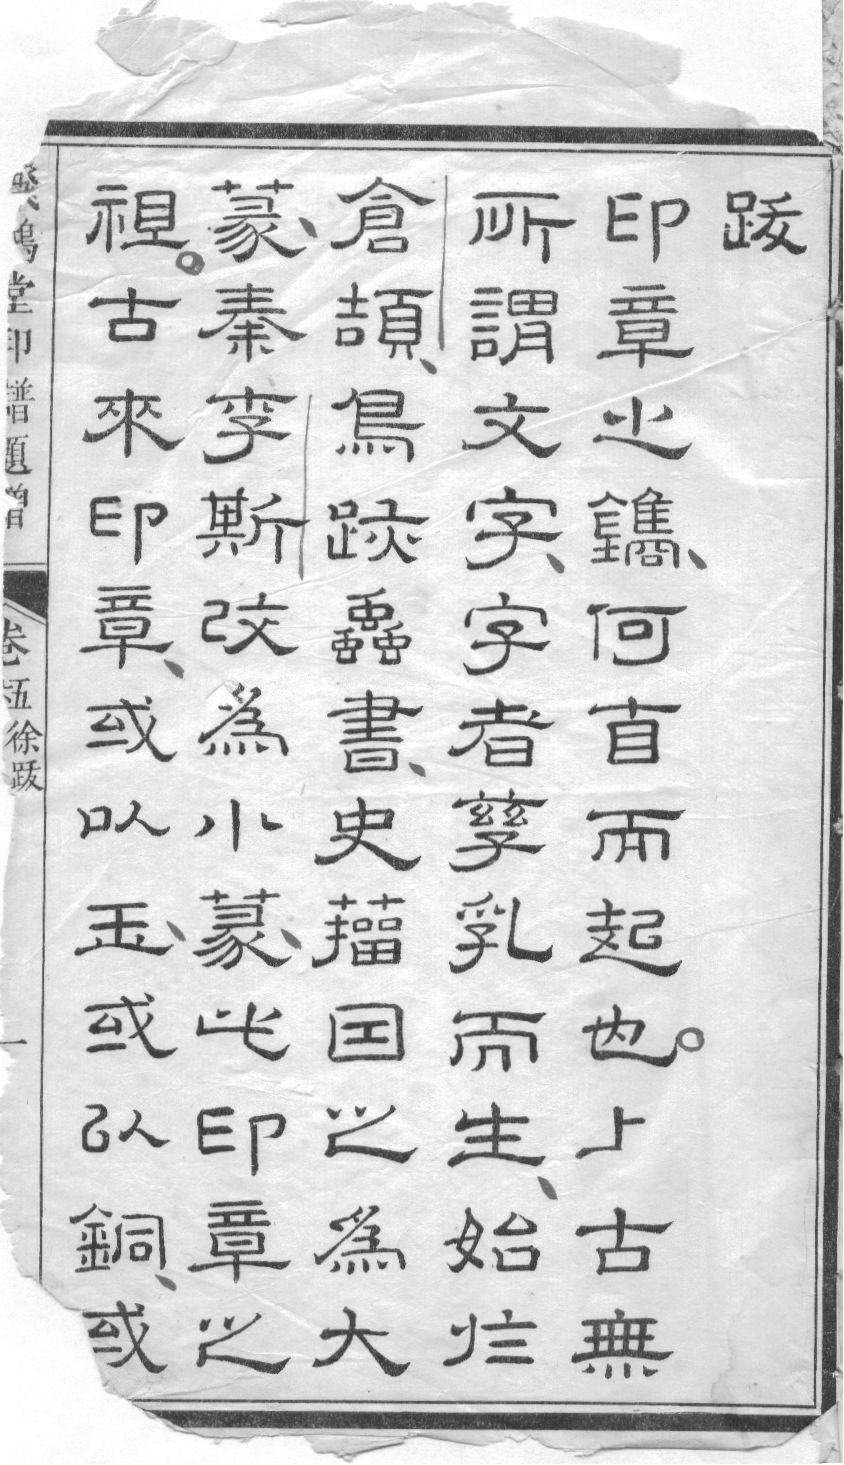 跋
印章之鐫、何自而起也。上古無
所謂文字、字者孳乳而生、始於
倉頡、鳥跡蟲書、史籀因之爲大
篆、秦李斯改爲小篆、此印章之
祖。古來印章、或以玉、或以銅、或
鴻堂印譜題贈
卷五 徐跋
一